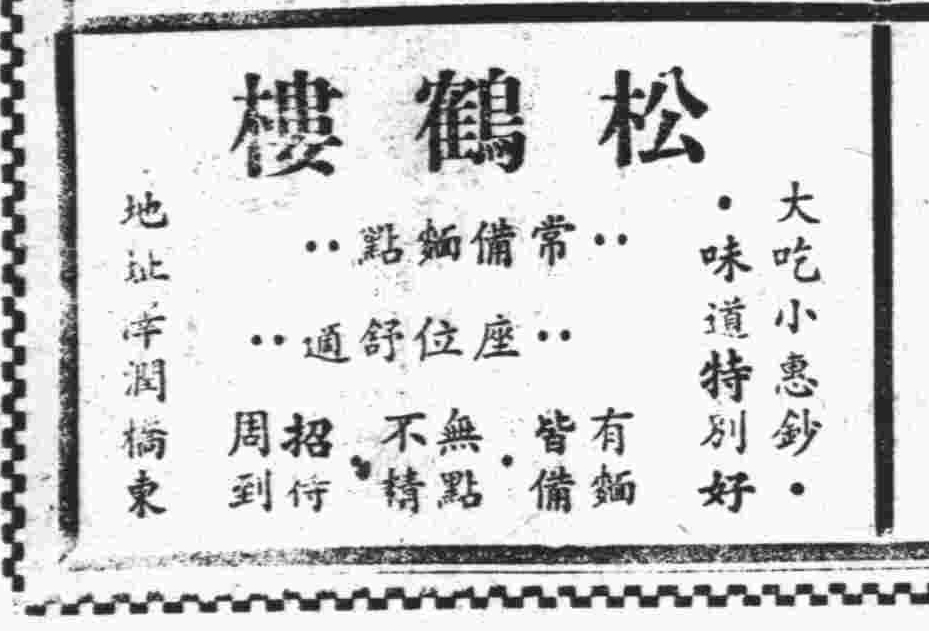 松鶴樓
大吃小惠鈔·
·味道特別好
··常備麵點··
··座位舒適··
有麵皆備·無點不精·招待周到
地址潤橋東